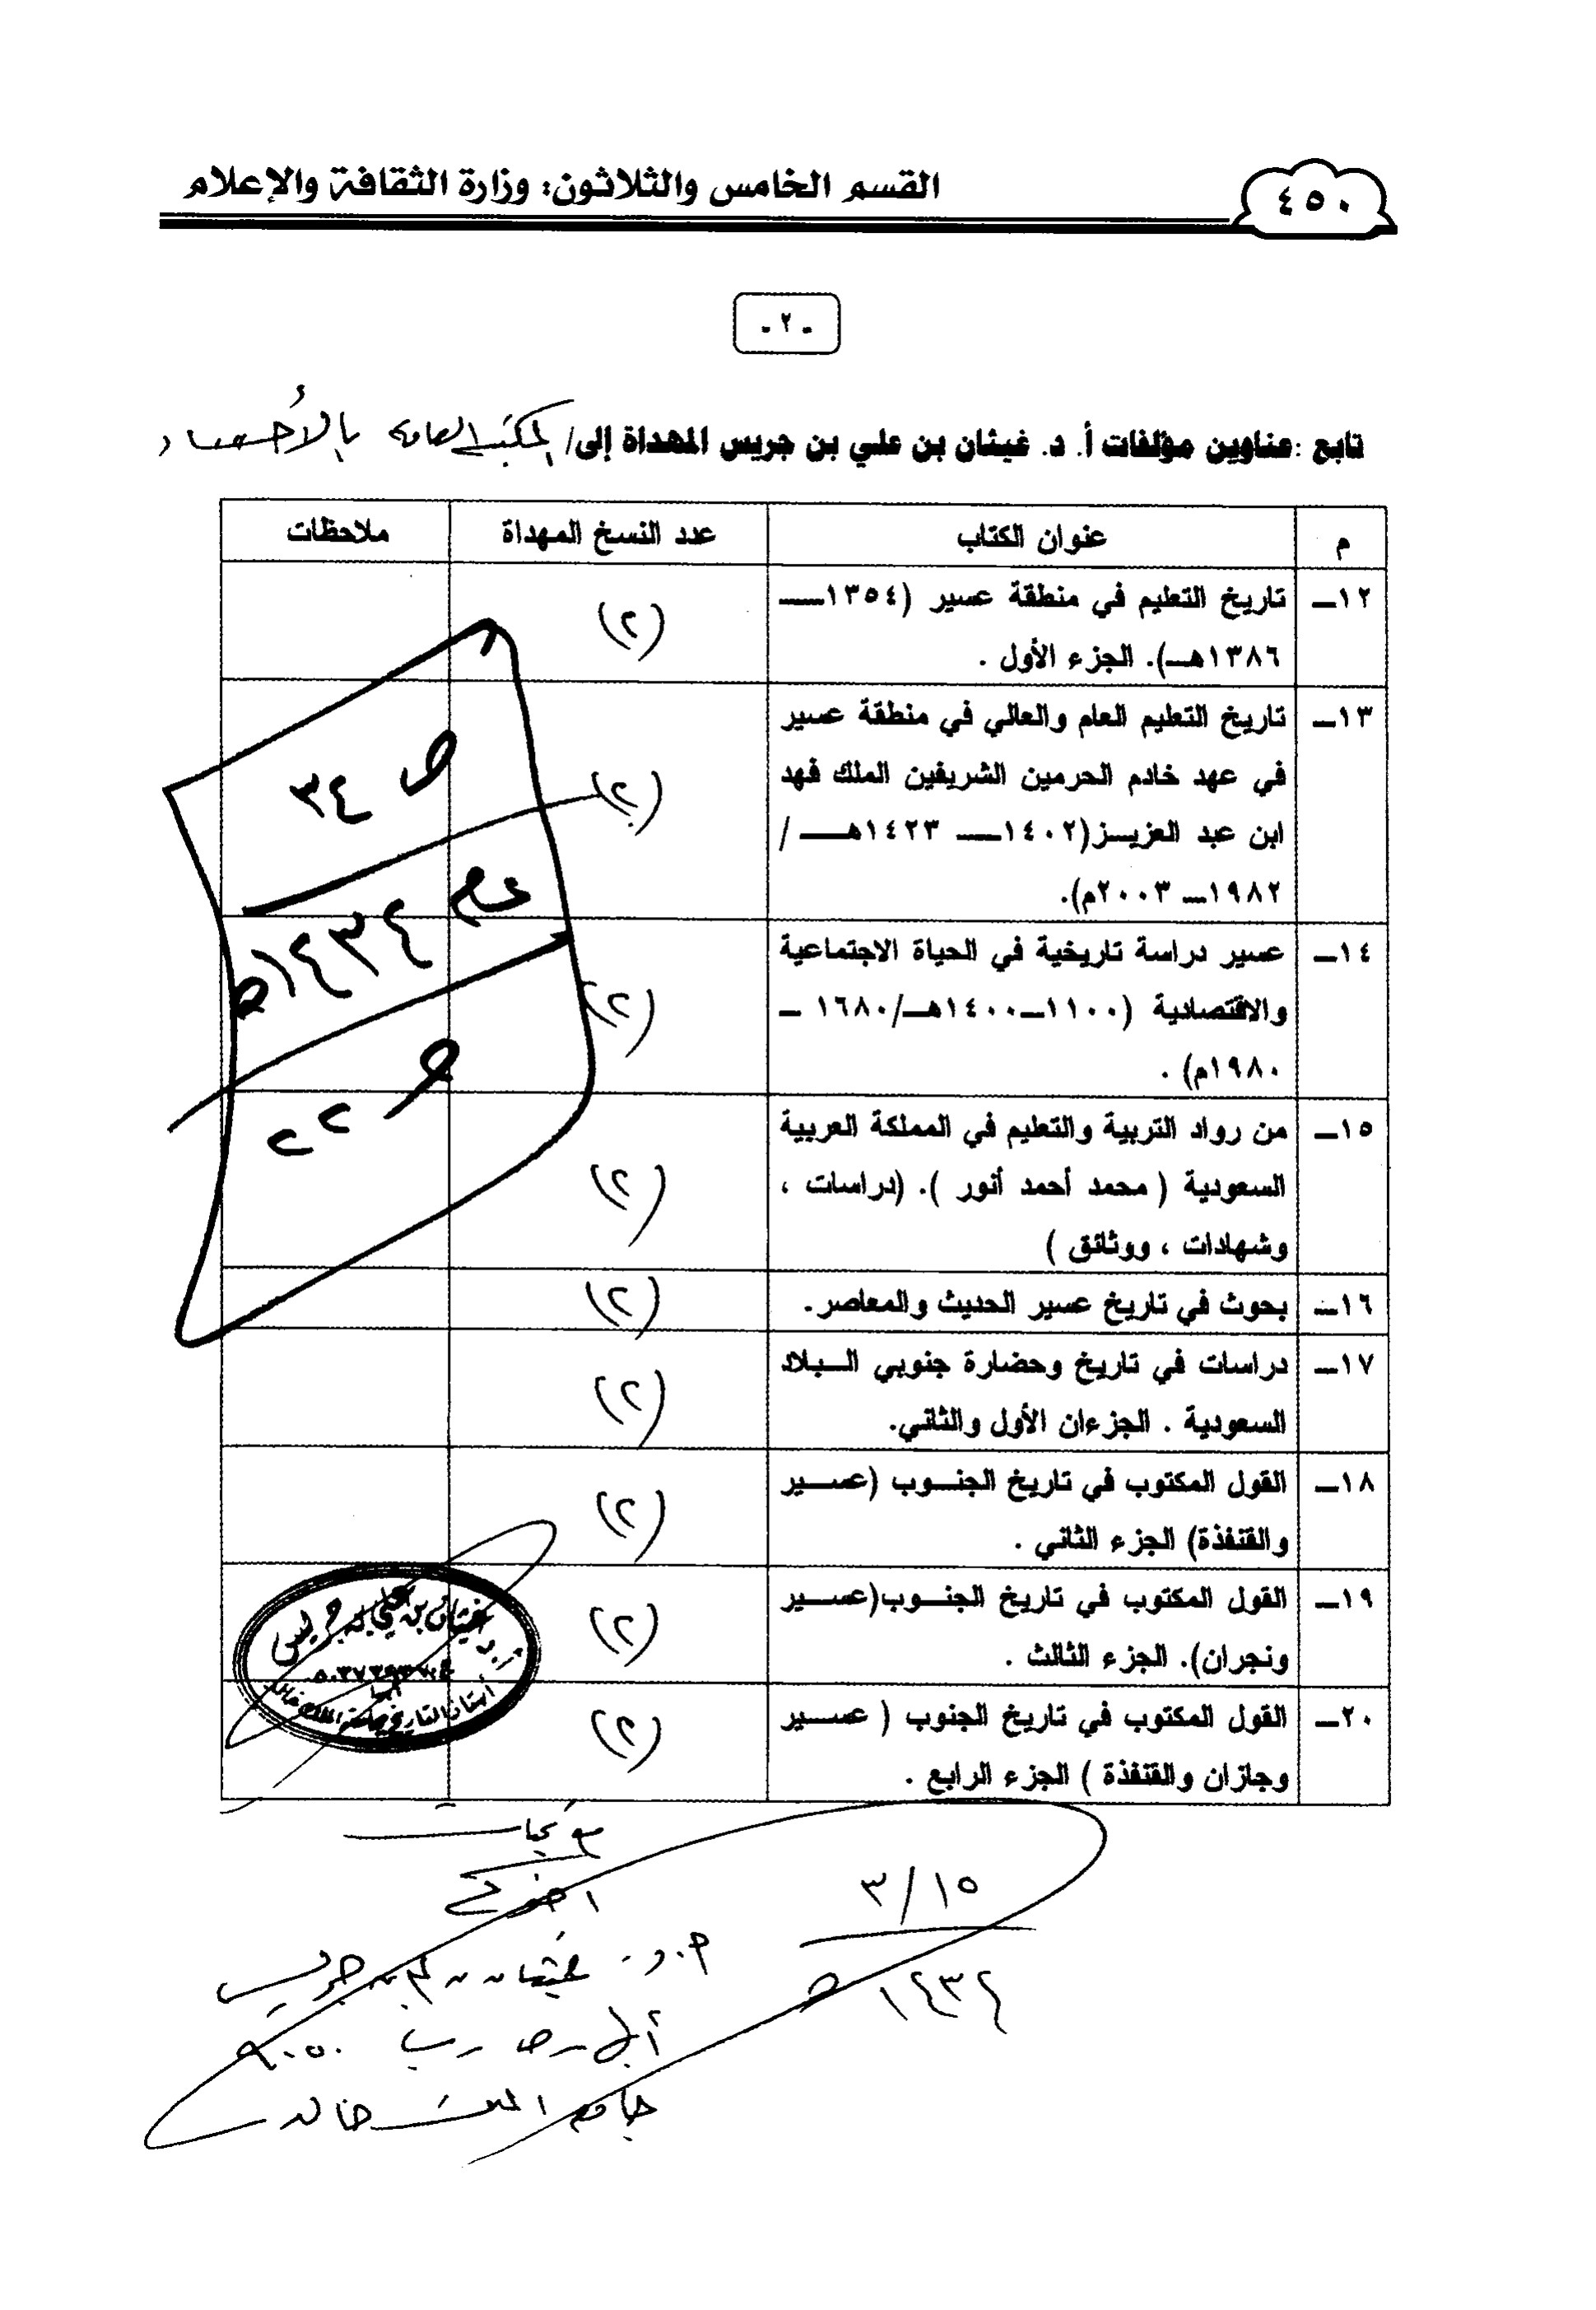 القسم الخامس والثلاثون: وزارة الثقافة والإعلام
٤٥٠
- ٢ -
تابع :عناوين مؤلفات أ. د. غيثان بن علي بن جريس المهداة إلى/ المكتبة العامة بالأحساء
م عنوان الكتاب عدد النسخ المهداة ملاحظات
١٢ــ تاريخ التعليم في منطقة عسير (١٣٥٤ــ (٢)
١٣٨٦هــ). الجزء الأول .
١٣ــ تاريخ التعليم العام والعالي في منطقة عسير
في عهد خادم الحرمين الشريفين الملك فهد (٢)
ابن عبد العزيــز(١٤٠٢ــ ١٤٢٣هــ /
١٩٨٢ــ ٢٠٠٣م).
١٤ــ عسير دراسة تاريخية في الحياة الاجتماعية
والاقتصادية (١١٠٠ــ١٤٠٠هــ/١٦٨٠ ــ (٢)
١٩٨٠م) .
١٥ــ من رواد التربية والتعليم في المملكة العربية
السعودية ( محمد أحمد أنور ). (دراسات ، (٢)
وشهادات ، ووثائق )
١٦ــ بحوث في تاريخ عسير الحديث والمعاصر. (٢)
١٧ــ دراسات في تاريخ وحضارة جنوبي الــبلاد (٢)
السعودية . الجزءان الأول والثاني.
١٨ــ القول المكتوب في تاريخ الجنــوب (عســير (٢)
والقنفذة) الجزء الثاني .
١٩ــ القول المكتوب في تاريخ الجنــوب(عســير (٢)
ونجران). الجزء الثالث .
٢٠ــ القول المكتوب في تاريخ الجنوب ( عســير (٢)
وجازان والقنفذة ) الجزء الرابع .
ص ٣٤
عام ١٤٣٤هـ
ص ٢٢
أ.د غيثان بن علي بن جريس
أبها
أستاذ التاريخ بجامعة الملك خالد
١٥/٣
١٤٣٤هـ
أ.د. غيثان بن علي بن جريس
أبها ص.ب ٩٠٥٠
جامعة الملك خالد